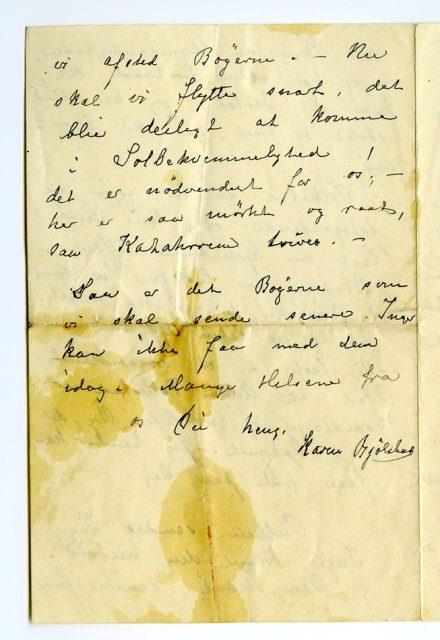 vi afsted Bøgerne. – Nu
skal vi flytte snart, det
blir deiligt at komme
i Solbekvemmelighed!
det er nødvendigt for os; –
her er saa mørkt og raat,
saa trives. –
Saa er det Bøgerne som
vi skal sende senere. Inger
kan ikke faa med dem
idag. Mange Hilsene fra
os Din heng.
Karen